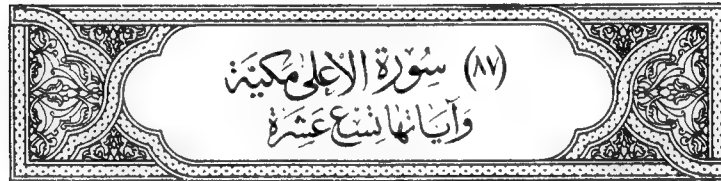 (٨٧) سُورَة الأعلى مكيّة
وَآيَاتها تسْع عَشرَة